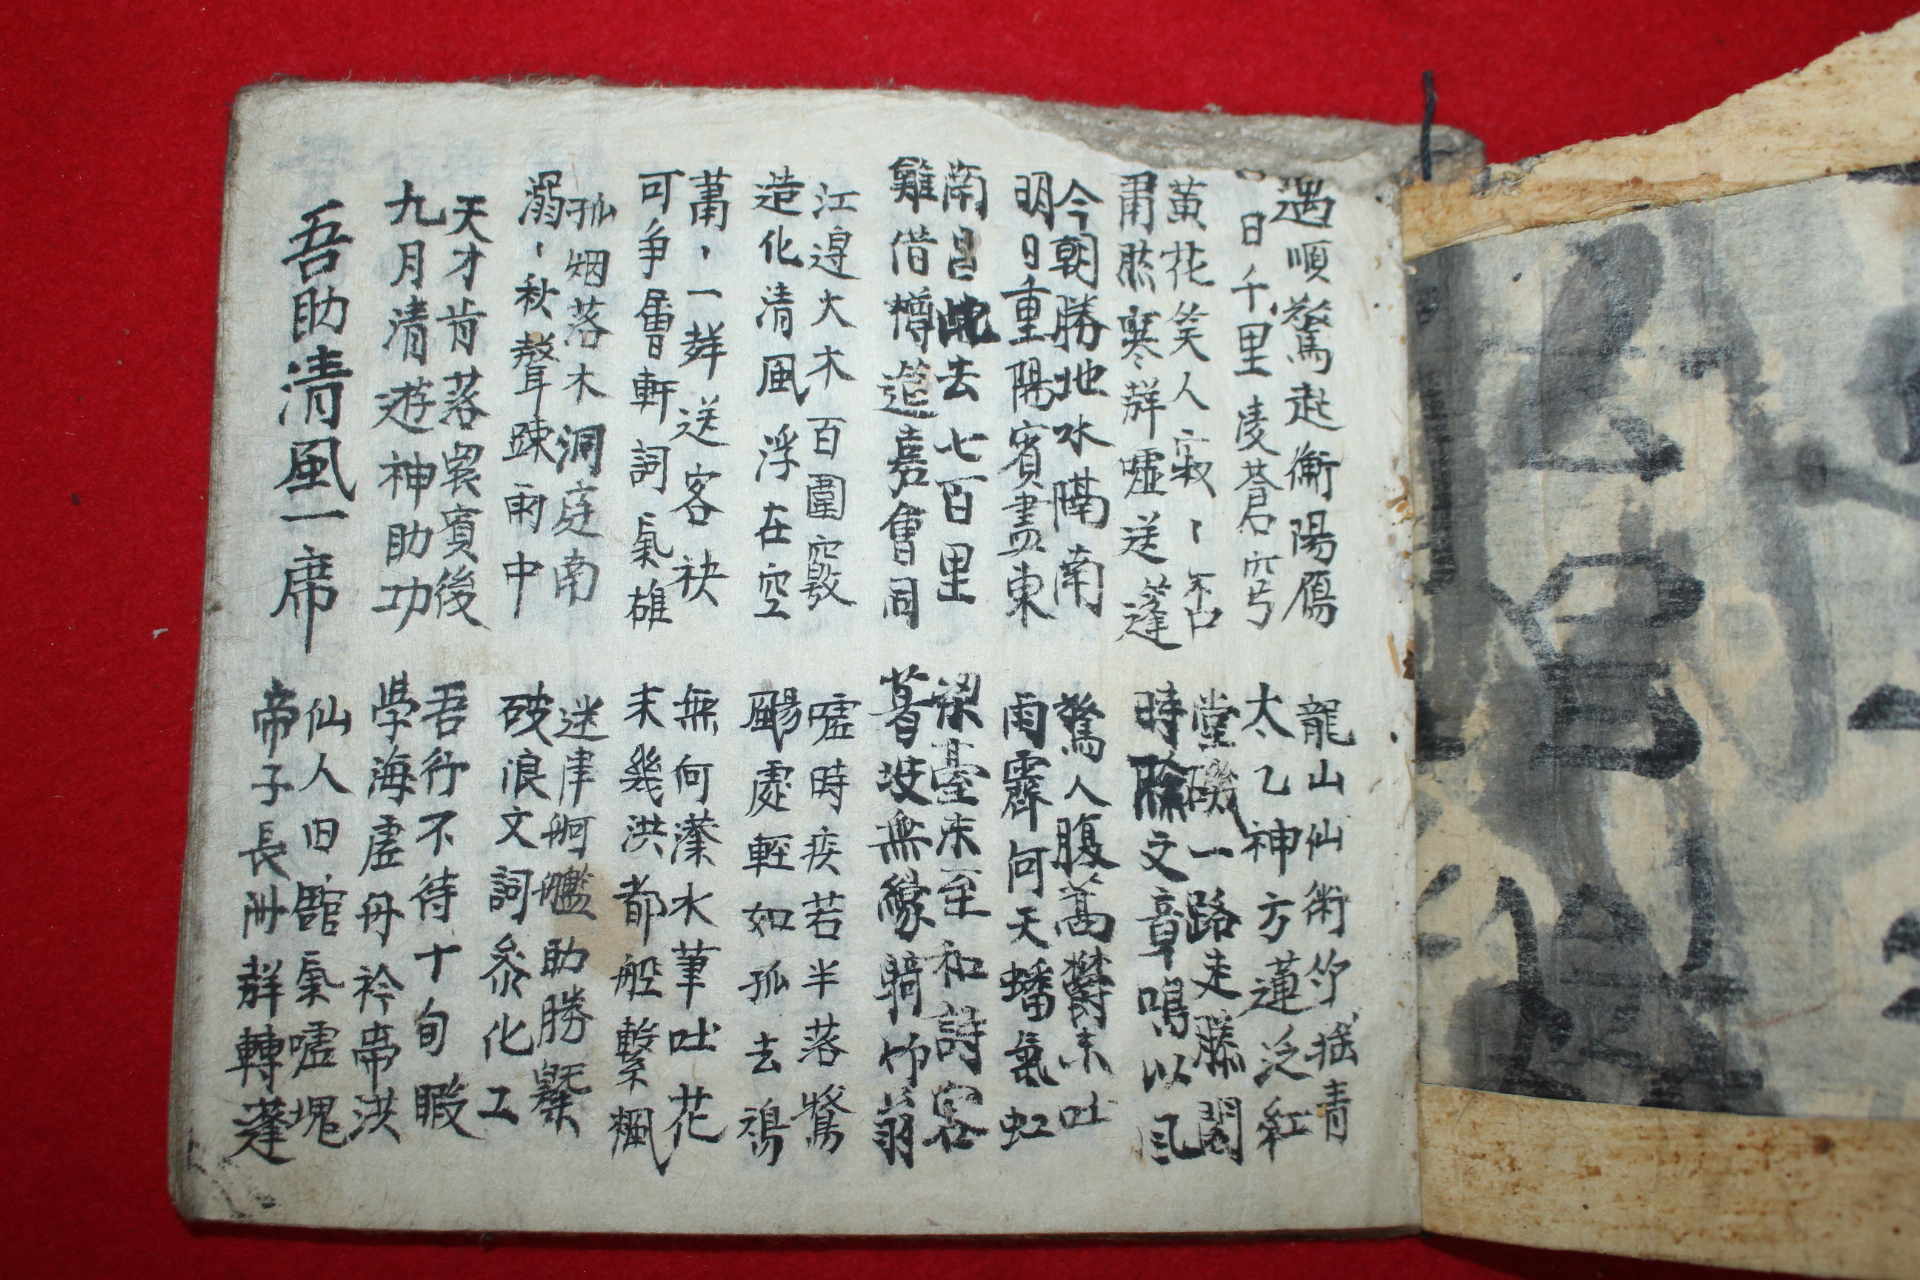 遇順驚起衡陽鴈
日千里凌蒼穹
黃花笑人寂〻否
肅然寒群噓送蓬
今朝勝地水滿南
明日重陽賓盡東
南昌此去七百里
難借樽筵嘉會同
江邊大木百圍竅
造化清風浮在空
蕭〻一群送客袂
可爭層軒詞氣雄
孤烟落木洞庭南
溺〻秋聲踈雨中
天才肯落衆賓後
九月清遊神助功
吾助清風一席
龍山仙術竹搖青
太乙神方蓮泛紅
堂磯一路走滕閣
時文章鳴以風
驚人腹藁欝未吐
雨霽何天蟠氣虹
梁臺未至和詩客
暮坡無緣騎竹翁
噓時疾若半落鶩
颺處輕如孤去鴻
無何水筆吐花
未幾洪都舩繫楓
迷津舸艦助勝槩
破浪文詞參化工
吾行不待十旬暇
學海虛舟衿帝洪
仙人旧舘氣噓塊
帝子長洲群轉蓬